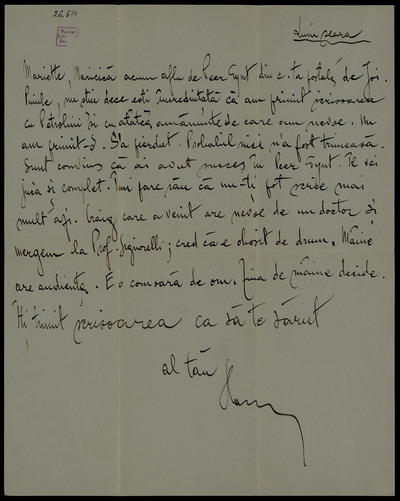 26.571
Luni seara
Mariette, Maricică acum aflu de Peer Gynt din c. ta poștală de Joi.
Puiule, nu știu dece ești încredințată că am primit scrisoarea
cu Petrolini și cu atâtea amănunte de care am nevoe. Nu
am primit-o. S'a pierdut. Probabil nici n'a fost trimeasă.
Sunt convins că ai avut succes în Peer Gynt. Te vei
juca și complet. Îmi pare rău că nu-ți pot scrie mai
mult azi. care a venit are nevoe de un doctor și
mergem la Prof. Signorelli; cred că e obosit de drum. Mâine
are audiență. E o comoară de om. Ziua de mâine decide.
Îți trimit scrisoarea ca să te sărut
al tău